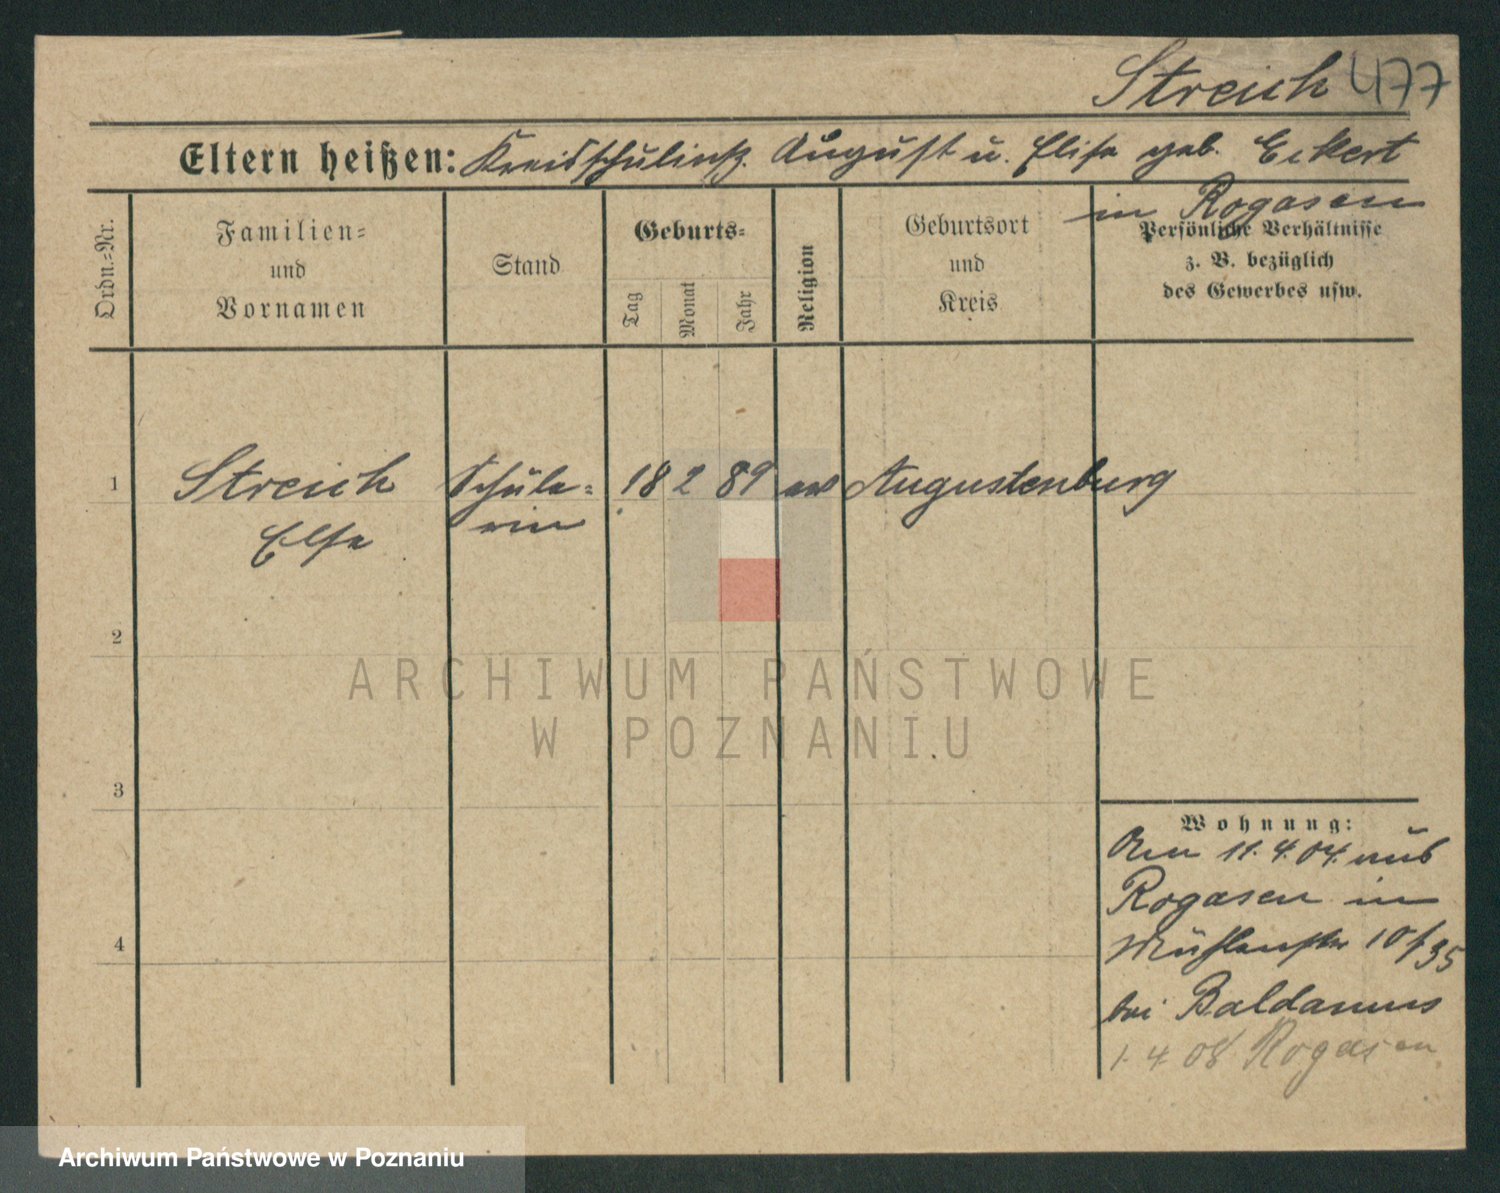 Streich 477
Eltern heißen: Kreisschulinsp. August u. Elise geb. Eckert
in Rogasen
Ordn.=Nr.
Familien=
und
Vornamen
Stand
Geburts=
Tag
Monat
Jahr
Religion
Geburtsort
und
Kreis
Persönliche Verhältnisse
z. B. bezüglich
des Gewerbes usw.
1
Streich
Else
Schüle=
rin
18 2 89 ev Augustenburg
2
ARCHIWUM PAŃSTWOWE
W POZNANIU
3
Wohnung:
Am 11.4.04. aus
Rogasen in
Mühlenstr 10/35
bei Baldamus
1.4 08 Rogasen
4
Archiwum Państwowe w Poznaniu